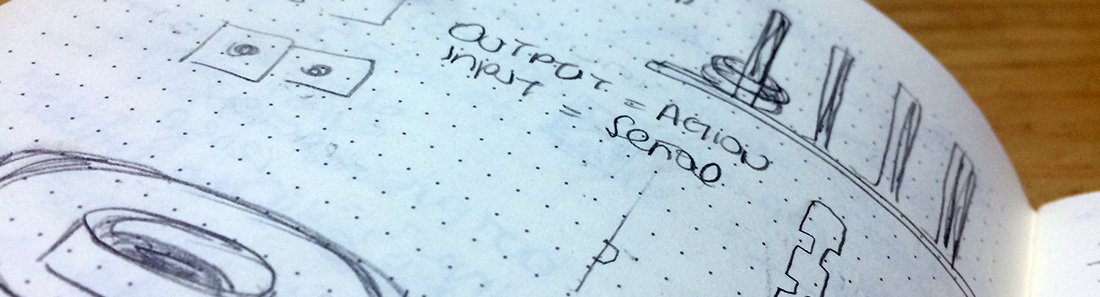 OUTPUT = ACTION
INPUT = Sensao